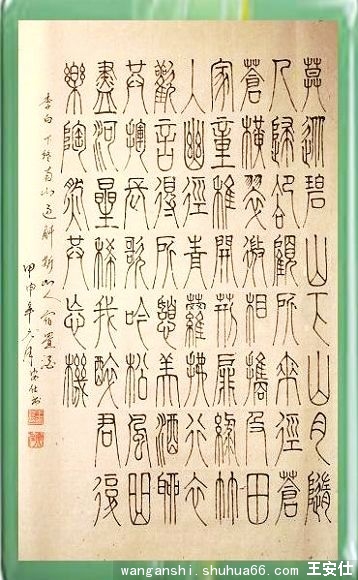 莫從碧山下山月隨
人歸卻顧所來徑蒼
蒼橫翠微相攜及田
家童稚開荊扉綠竹
入幽徑青蘿拂行衣
歡言得所憩美酒聊
共揮長歌吟松風曲
盡河星稀我醉君復
樂陶然共忘機
李白下终南山过斛斯山人宿置酒
甲申年六月安仕书
wanganshi.shuhua66.com 王安仕